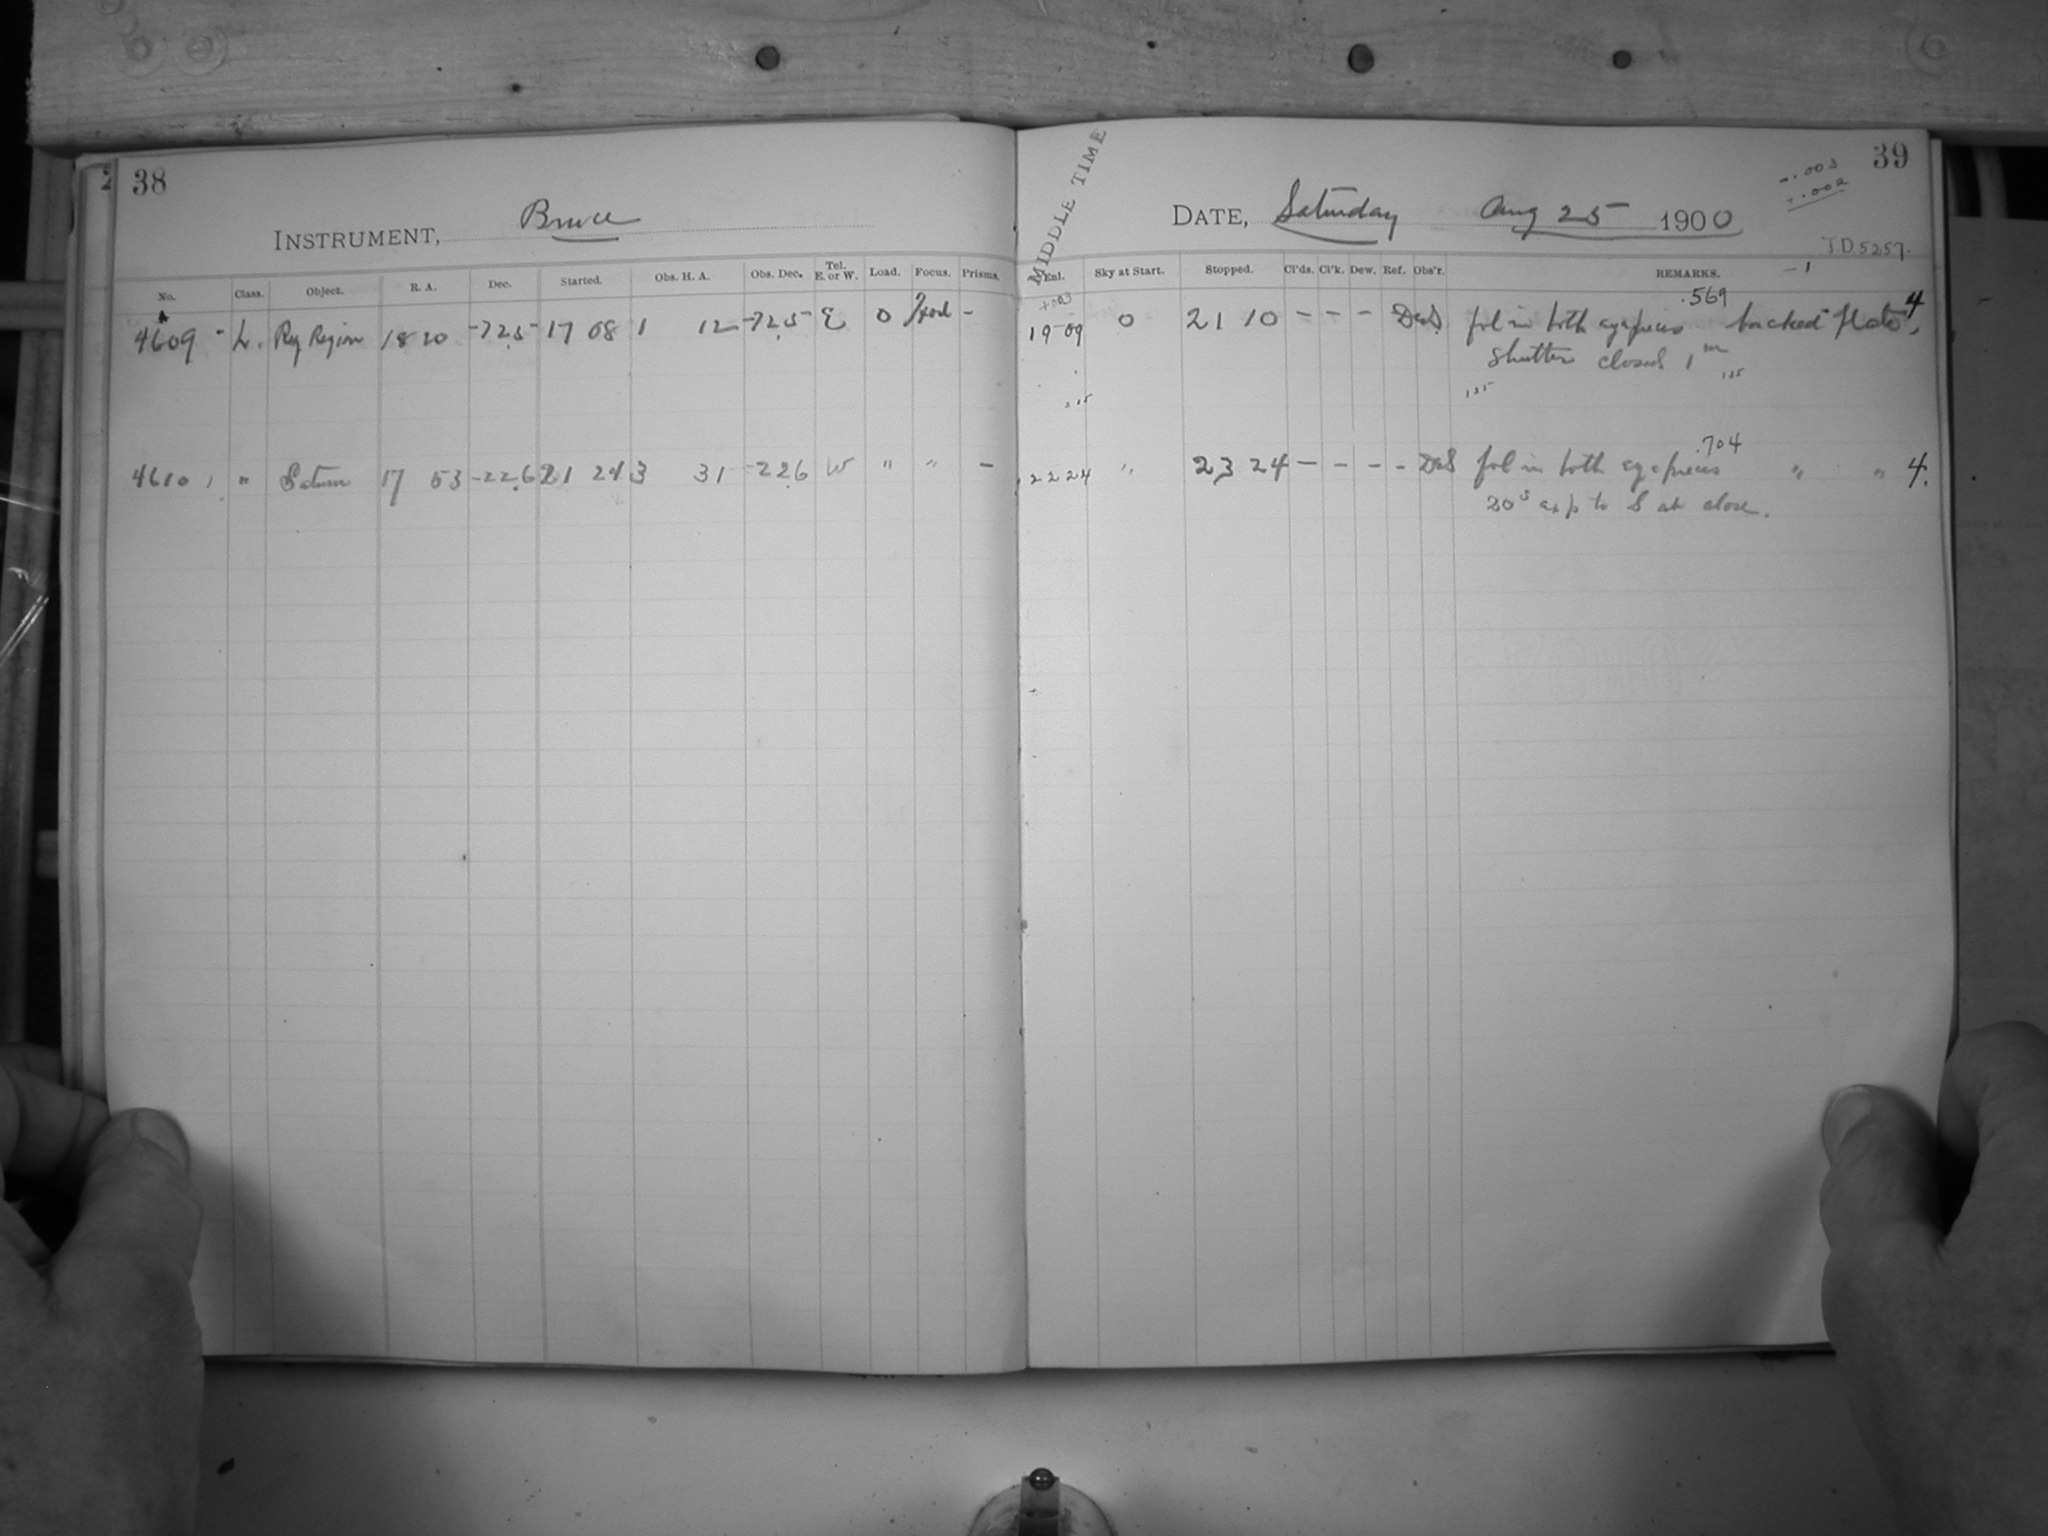 38
INSTRUMENT, Bruce
No. Class. Object. R. A. Dec. Started. Obs. H. A. Obs. Dec. Tel. E. or W. Load. Focus. Prisms.
4609 - L. Reg Region 18 20 -72.5 17 08 1 12 -72.5 E 0 -
4610 " Saturn 17 53 -22.6 21 24 3 31 -22.6 W " " -
39
-.003
+.002
MIDDLE TIME
DATE, Saturday Aug 25 1900
J.D 5257.
Enl. Sky at Start. Stopped. Cl'ds. Cl'k. Dew. Ref. Obs'r. REMARKS. -1
+003 .569
19 09 0 21 10 - - - DeS fol in both eyepieces backed plate 4
shutter closed 1 m
135 135
.704
22 24 " 23 24 - - - - DeS fol in both eyepieces " " 4.
20 s exp to S at close.